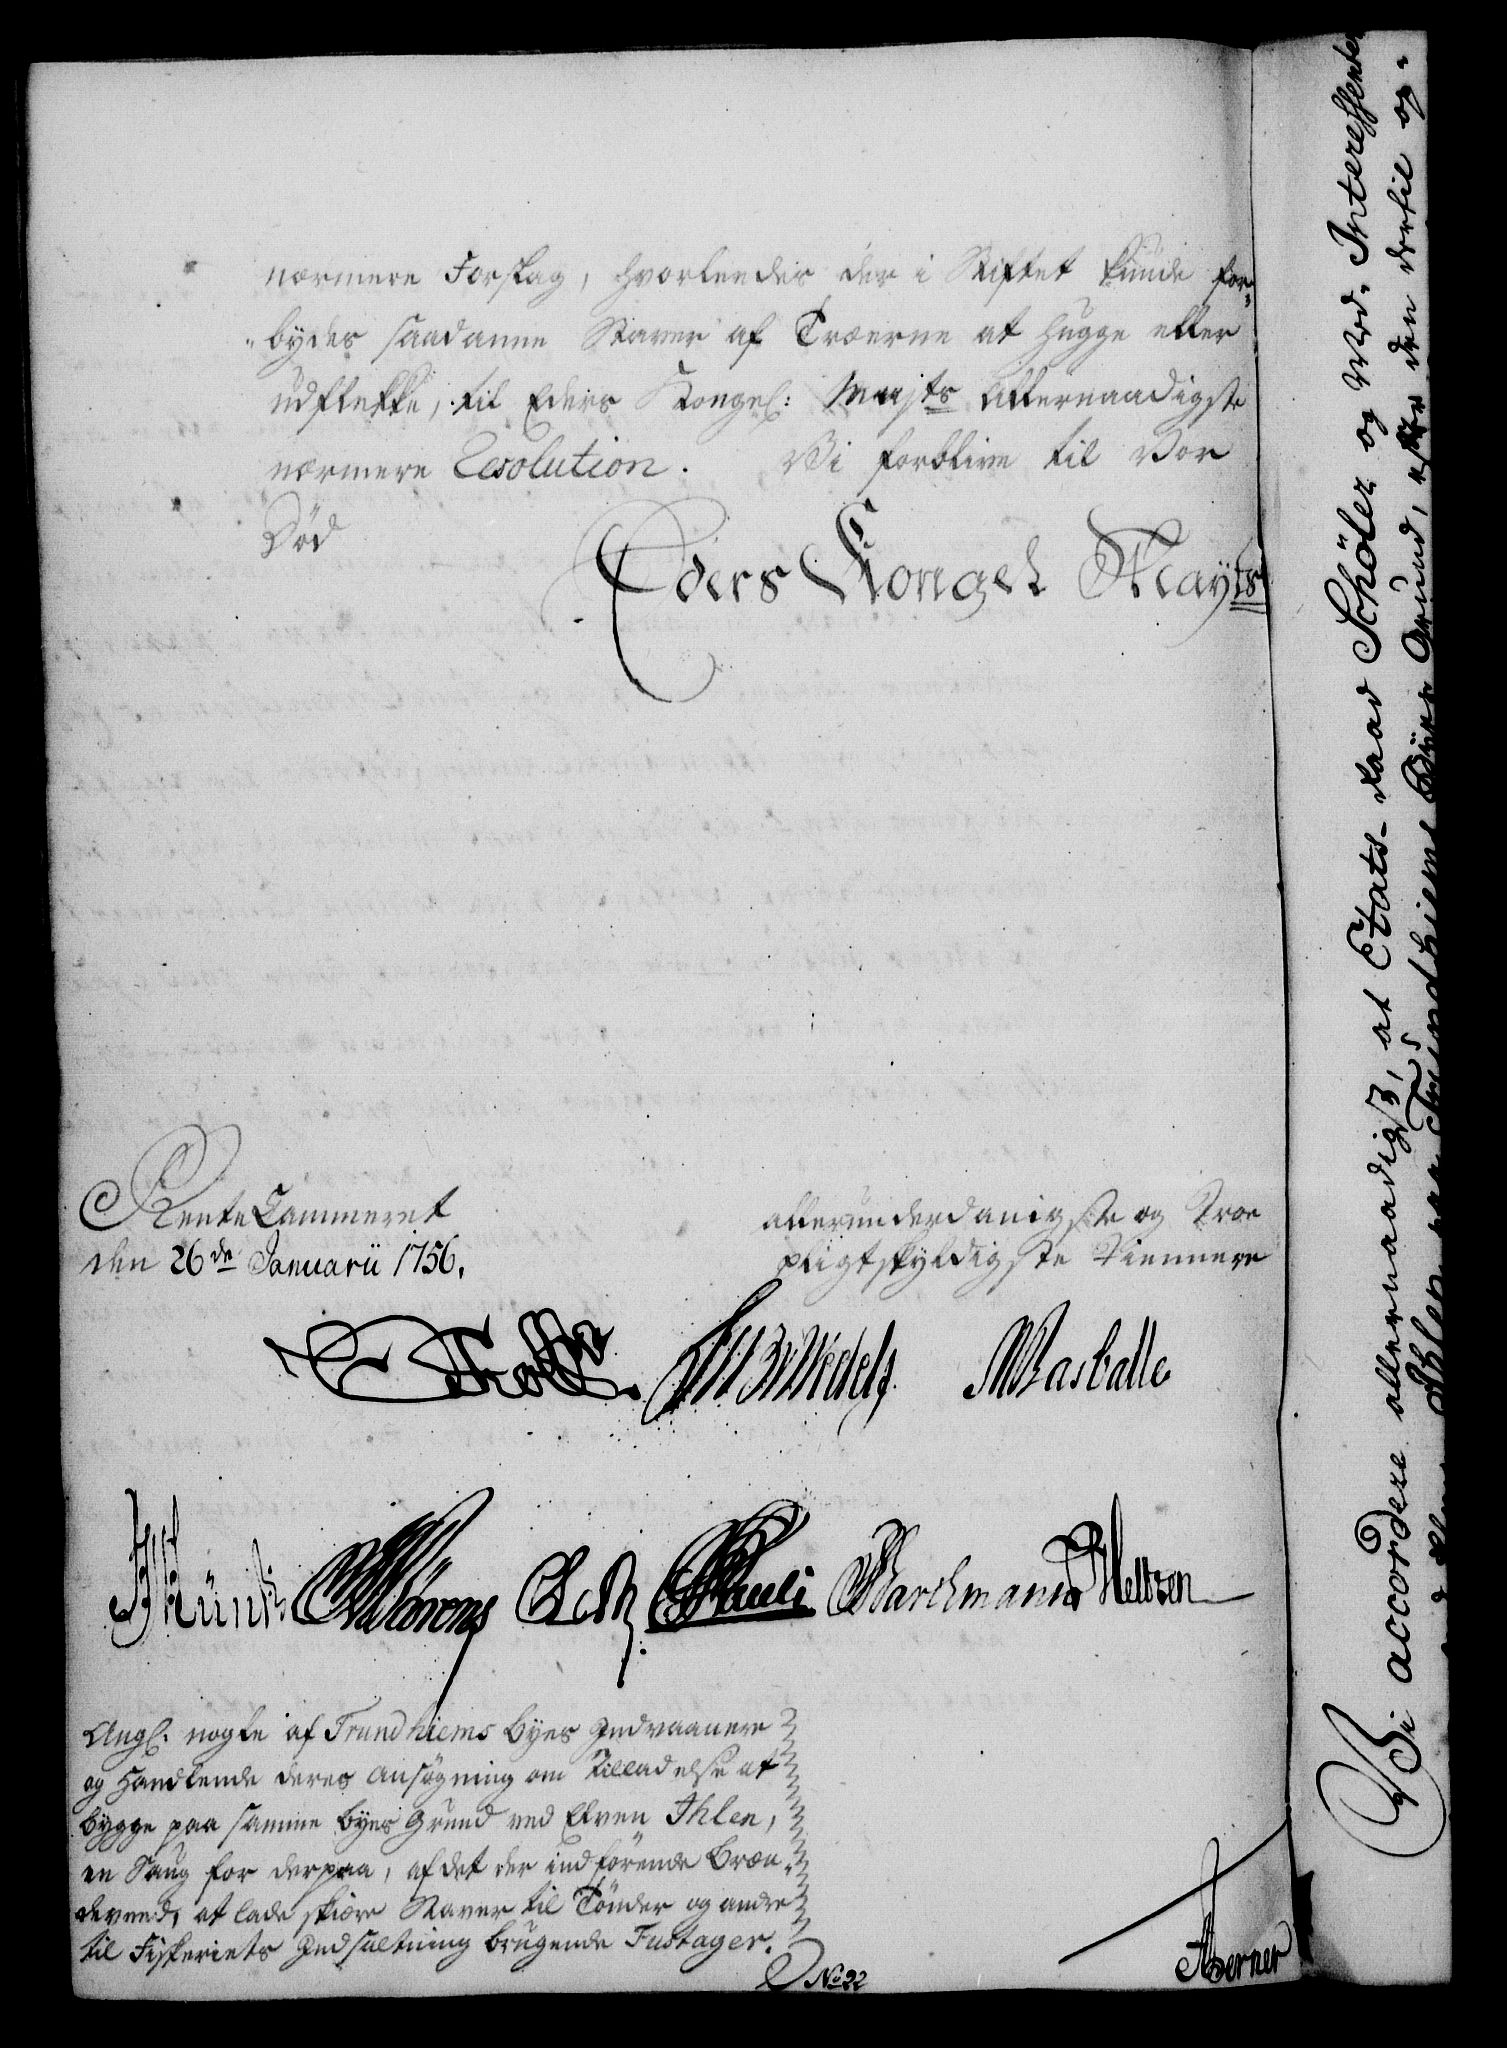 nærmere Forslag, hvorledes der i Stiftet kunde for-
-bydes saadanne Staver af Træerne at hugge eller
udflekke, til Eders Kongel: Mayts allernaadigste
nærmere Resolution. Vi forblive til vor
Død
Eders Kongel Mayts
Rente Cammeret
den 26de Januarii 1756.
allerunderdanigste og Troe
pligtskyldigste Tiennere
Holst
Wedels
Rasballe
Müntz
C Pauli
Barchmann
Meltzen
Angl. nogle af Trundhiems Byes Indvaanere
og Handlende deres Ansøgning om Tilladelse at
bygge paa samme Byes Grund ved Elven Ihlen,
en Saug for derpaa, af det der indførende Bræn-
deveed, at lade skiære Staver til Tønder og andre
til Fiskeriets Indsaltning brugende Fustager.
No 22
Aberner
Vi accordere allernaadigst, at Etats-Raad Schöler og Med-Interessenter
Ihlen, paa Trundhiems Byes Grund, efter den dertil og-